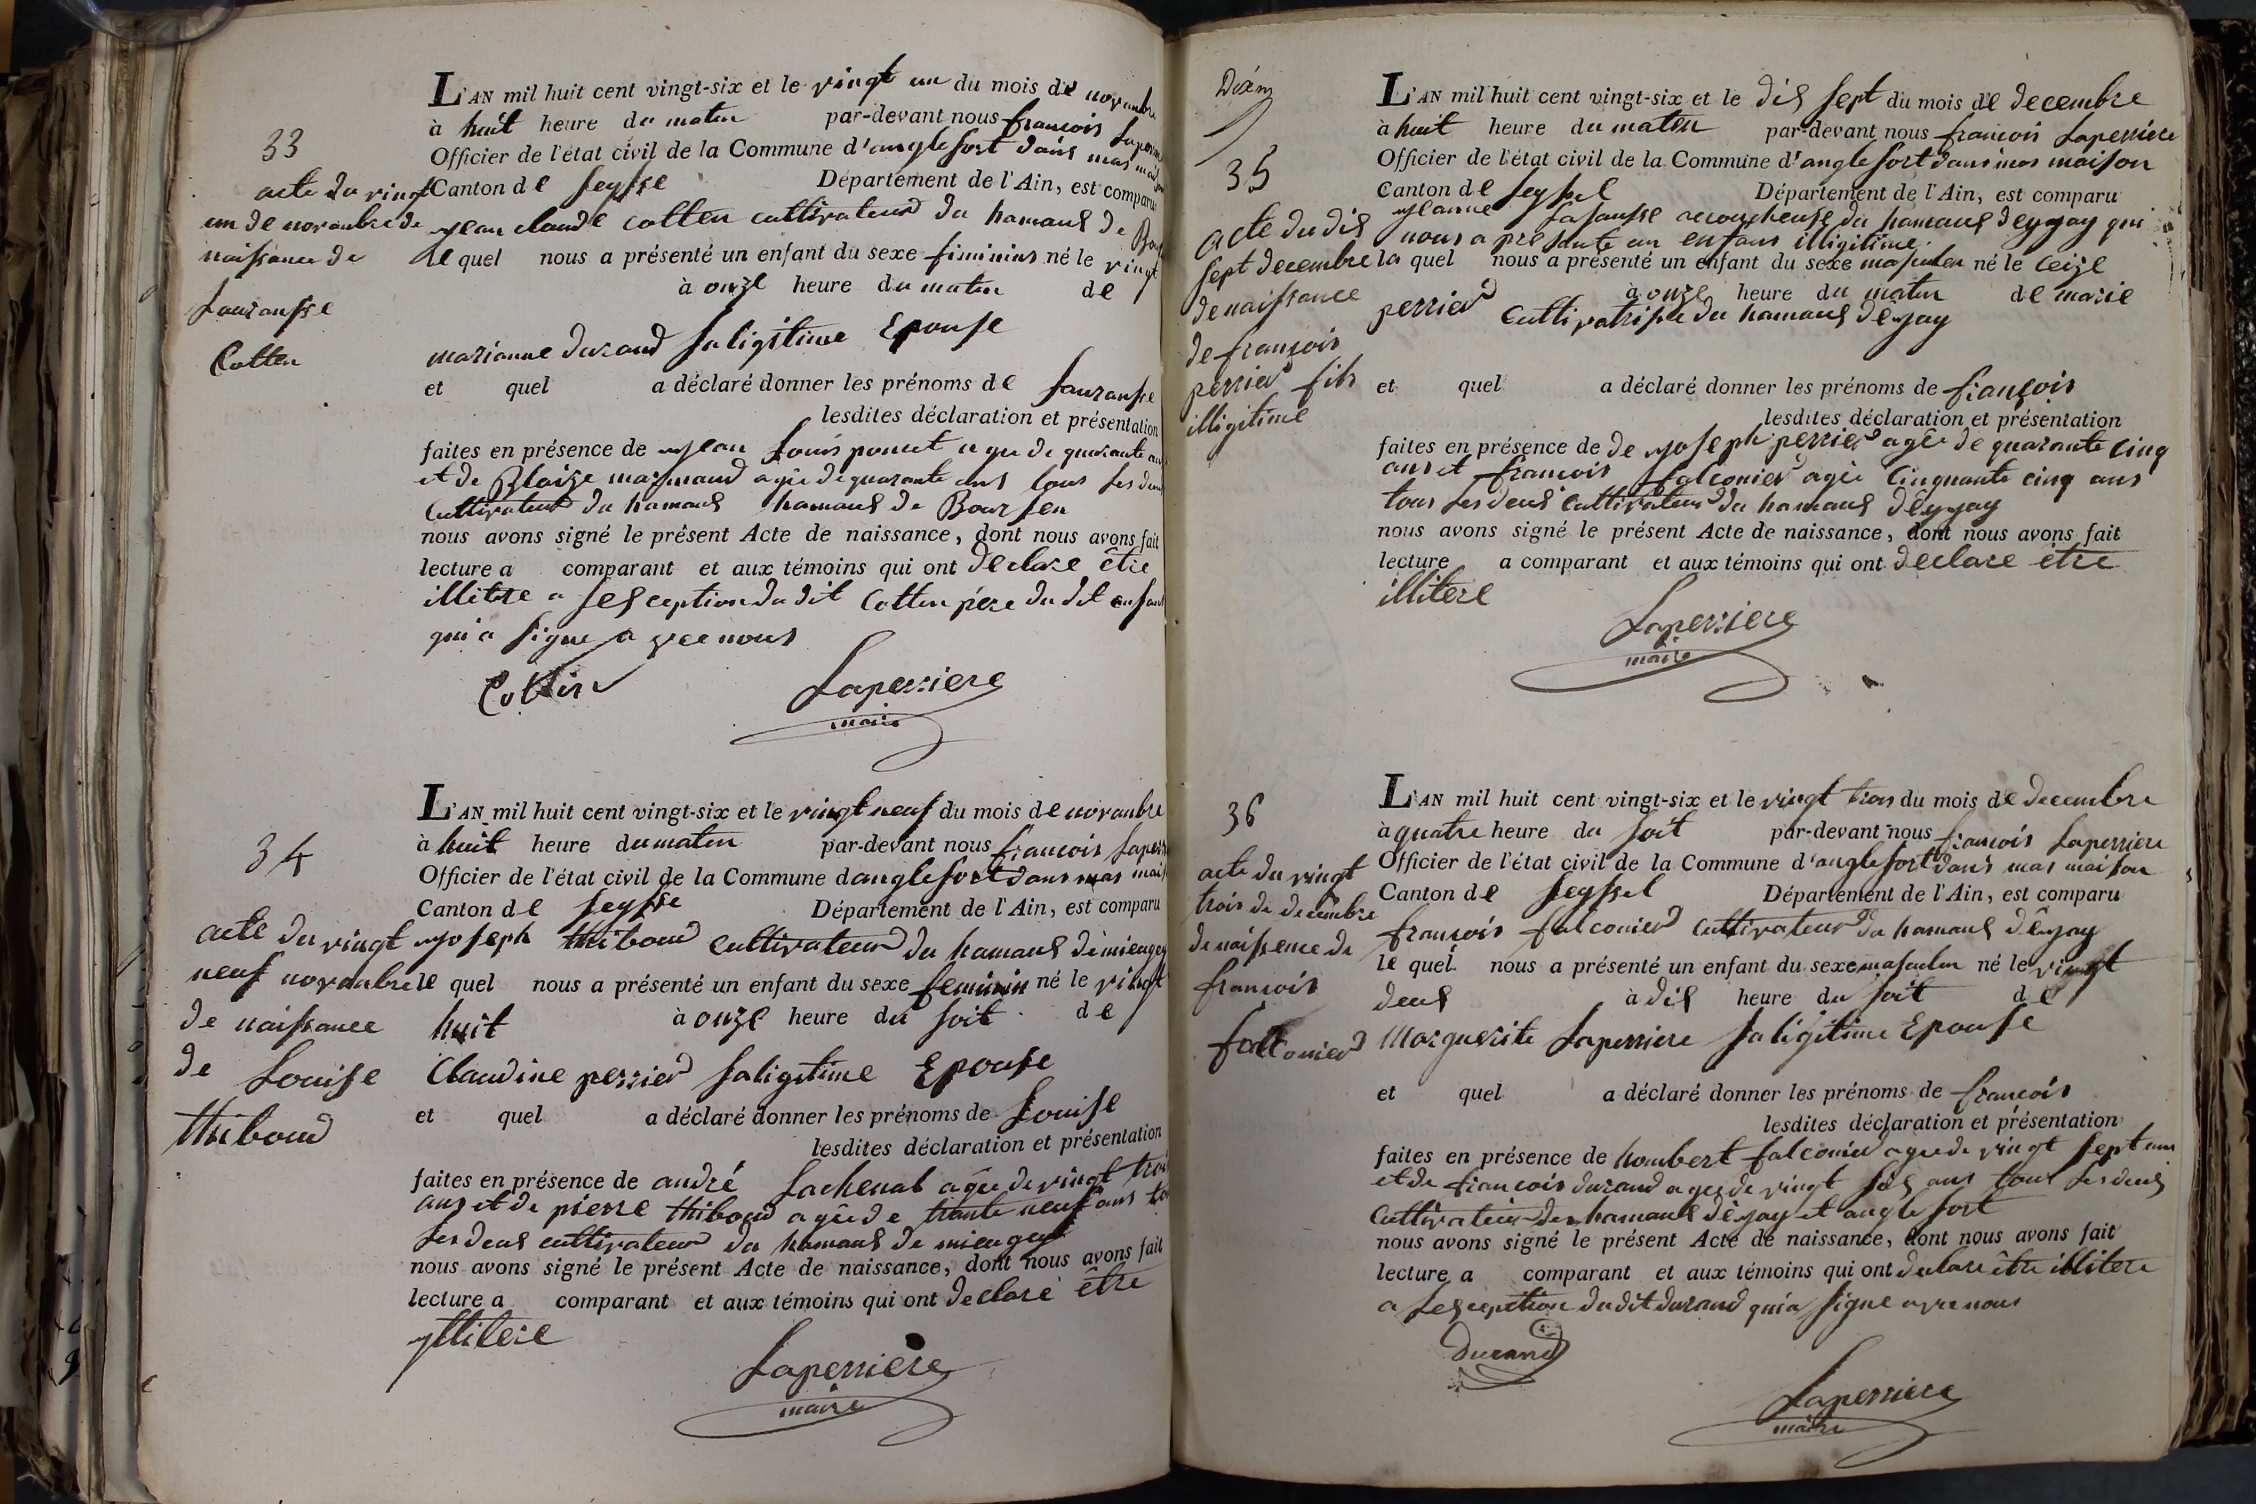 33
acte du vingt
un de novanbre de
naissance de
Lauransse
Cotten
L'AN mil huit cent vingt-six et le vingt un du mois de novanbre
à huit heure du maten par-devant nous francois Laperriere
Officier de l'état civil de la Commune d'anglefort dans mas maison
Canton de Seysse Département de l'Ain, est comparu
jean claude cotten cultivateur du hamaus de
le quel nous a présenté un enfant du sexe fiminins né le vingt
à onze heure du maten de
marianne durand saligitime Epouse
et quel a déclaré donner les prénoms de Lauransse
lesdites déclaration et présentation
faites en présence de jean Louis poncet agee de quarante ans
et de Blaize marmand agée de quarante ans tous ses deus
cultivateur du hamaus hamaus de Boursen
nous avons signé le présent Acte de naissance, dont nous avons fait
lecture a comparant et aux témoins qui ont declare être
illitere a lesception du dit Cotten père du dit enfant
qui a signe avec nous
Cottin Laperriere
maire
34
acte du vingt
neuf novanbre
de naissance
de Louise
thiboud
L'AN mil huit cent vingt-six et le vingt neuf du mois de novanbre
à huit heure du maten par-devant nous francois Laperr
Officier de l'état civil de la Commune d'anglefort dans mas mais
Canton de Seysse Département de l'Ain, est comparu
joseph thiboud cultivateur du hamaus de miengey
le quel nous a présenté un enfant du sexe feminin né le vingt
huit à onze heure du soit de
Claudine perrier saligitime Epouse
et quel a déclaré donner les prénoms de Louise
lesdites déclaration et présentation
faites en présence de andré Lachenal agée de vingt trois
ans et de pierre thiboud agée de trante neuf ans to
ses deus cultivateur du hamaus de miengey
nous avons signé le présent Acte de naissance, dont nous avons fait
lecture a comparant et aux témoins qui ont declaré être
yllitere
Laperriere
maire
35
acte du dis
sept decembre
de naissance
de françois
perrier fils
illigitime
L'AN mil huit cent vingt-six et le dis sept du mois de decembre
à huit heure du maten par-devant nous francois Laperriere
Officier de l'état civil de la Commune d'anglefort dans mas maison
Canton de Seyssel Département de l'Ain, est comparu
jeanne acoucheuse du hamaus deyjay qui
nous a presante un enfans illigitime
la quel nous a présenté un enfant du sexe masculen né le ceize
à onze heure du maten de marie
perrier cultivatrisse du hamaus deyjay
et quel a déclaré donner les prénoms de françois
lesdites déclaration et présentation
faites en présence de de joseph perrier agée de quarante cinq
ans et francois falconier agée Cinquante cinq ans
tous ses deus cultivateur du hamaus deyjay
nous avons signé le présent Acte de naissance, dont nous avons fait
lecture a comparant et aux témoins qui ont declare être
illitere
Laperriere
maire
36
acte du vingt
trois de decembre
de naissence de
francois
falconier
L'AN mil huit cent vingt-six et le vingt trois du mois de decembre
à quatre heure du soit par-devant nous francois Laperriere
Officier de l'état civil de la Commune d'anglefort dans mas maison
Canton de Seyssel Département de l'Ain, est comparu
francois falconier cultivateur du hamaus deyjay
le quel nous a présenté un enfant du sexe masculen né le vingt
deus à dis heure du soit de
Marguerite Laperriere saligitime Epouse
et quel a déclaré donner les prénoms de francois
lesdites déclaration et présentation
faites en présence de hombert falconier agée de vingt sept ans
et de francois durand agee de vingt sis ans tous ses deus
cultivateur des hamaus deyjay et anglefort
nous avons signé le présent Acte de naissance, dont nous avons fait
lecture a comparant et aux témoins qui ont declare être illitere
a lesception dudit durand qui a signe avec nous
durand
Laperriere
maire